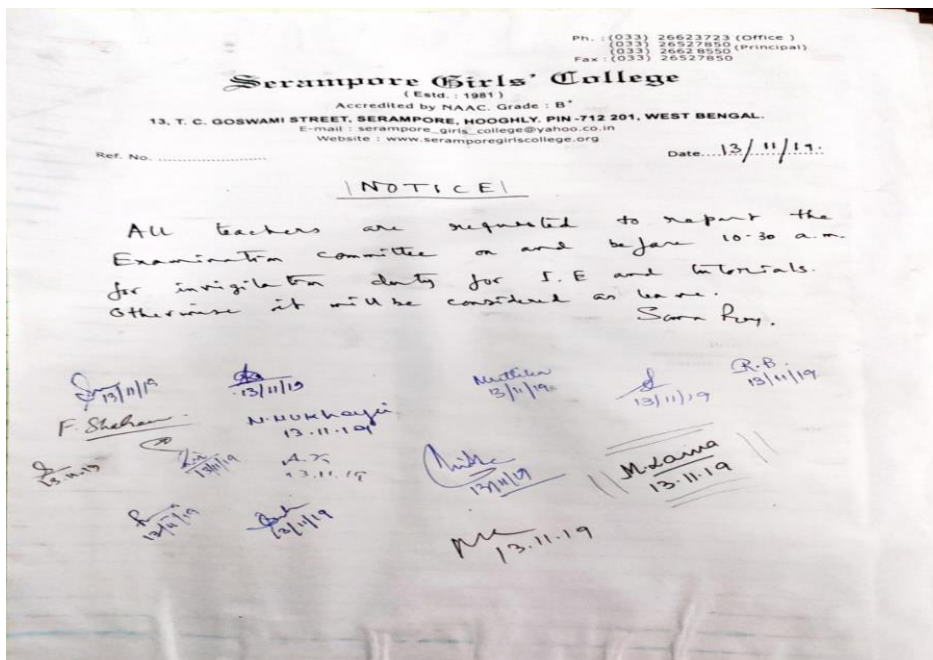 Ph. : (033) 26623723 (Office )
(033) 26527850 (Principal)
(033) 2662 8550
Fax : (033) 26527850
Serampore Girls' College
( Estd. : 1981 )
Accredited by NAAC. Grade : B+
13, T. C. GOSWAMI STREET, SERAMPORE, HOOGHLY. PIN -712 201, WEST BENGAL.
E-mail : serampore_girls_college@yahoo.co.in
Website : www.seramporegirlscollege.org
Ref. No. ..........................
Date....13/11/19.
NOTICE
All teachers are requested to report the
Examination committee on and before 10-30 a.m.
for invigilation duty for I.E and tutorials.
Otherwise it will be considered as leave.
Soma Roy.
13/11/19
13/11/19
13/11/19
13/11/19
R.B.
13/11/19
F.
N. Mukherjee
13.11.19
13.11.19
13/11/19
A.
13.11.19
13/11/19
M. Laira
13.11.19
13/11/19
13/11/19
13.11.19